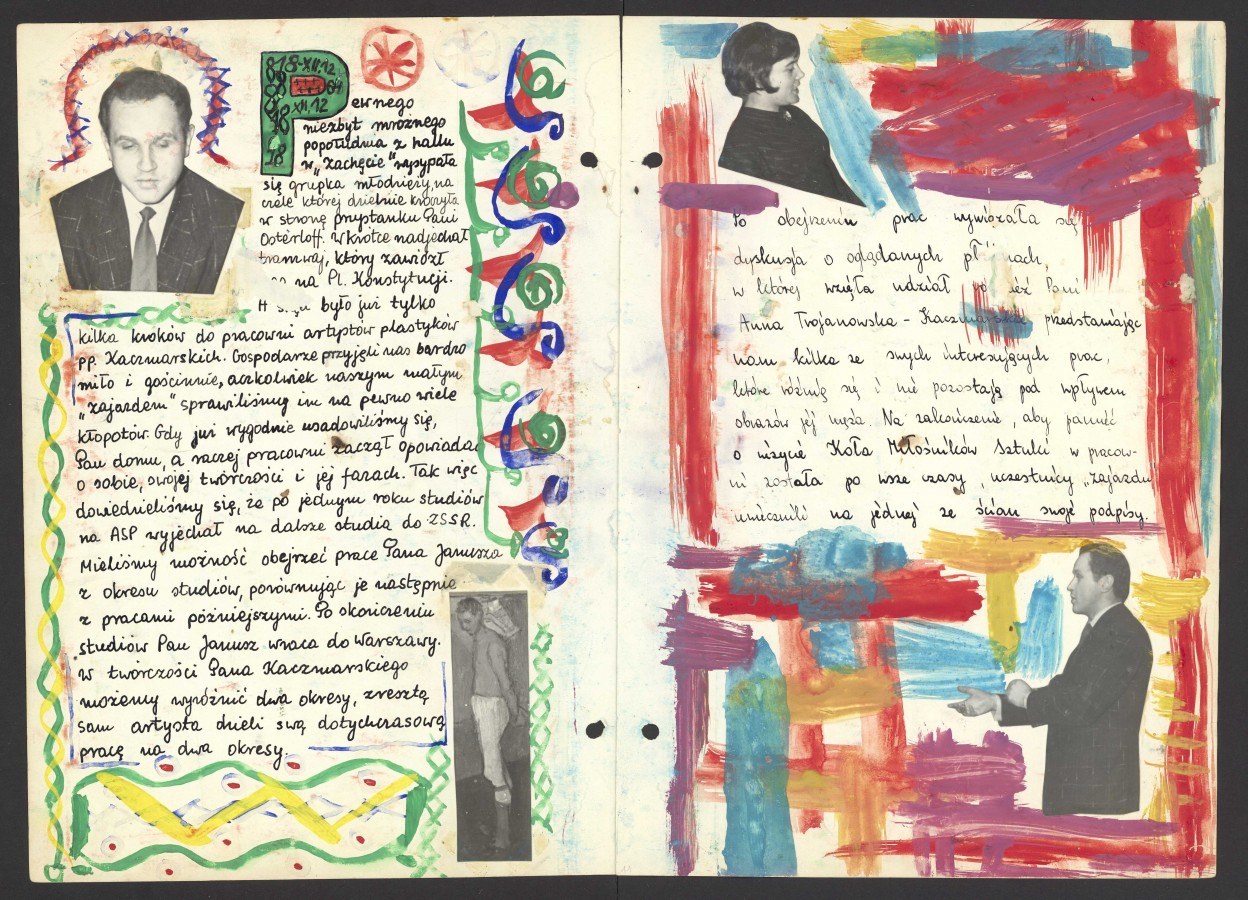 818-XII.12
XII.12
Pewnego
niezbyt mroźnego
popołudnia z hallu
w „Zachęcie" wysypała
się grupka młodzieży, na
czele której dzielnie kroczyła
w stronę przystanku Pani
Osterloff. Wkrótce nadjechał
tramwaj, który zawiózł
na Pl. Konstytucji.
było już tylko
kilka kroków do pracowni artystów plastyków
pp. Kaczmarskich. Gospodarze przyjęli nas bardzo
miło i gościnnie, aczkolwiek naszym małym
„zajazdem" sprawiliśmy im na pewno wiele
kłopotów. Gdy już wygodnie usadowiliśmy się,
Pan domu, a raczej pracowni zaczął opowiadać
o sobie, swojej twórczości i jej fazach. Tak więc
dowiedzieliśmy się, że po jednym roku studiów
na ASP wyjechał na dalsze studia do ZSSR.
Mieliśmy możność obejrzeć prace Pana Janusza
z okresu studiów, porównując je następnie
z pracami późniejszymi. Po skończeniu
studiów Pan Janusz wraca do Warszawy.
W twórczości Pana Kaczmarskiego
możemy wyróżnić dwa okresy, zresztą
sam artysta dzieli swą dotychczasową
pracę na dwa okresy.
Po obejrzeniu prac wywiązała się
dyskusja o oglądanych
w której wzięła udział Pani
Anna Trojanowska - Kaczmarska przedstawiając
nam kilka ze swych interesujących prac,
które różnią się i nie pozostają pod wpływem
obrazów jej męża. Na zakończenie, aby pamięć
o wizycie Koła Miłośników Sztuki w pracow-
ni została po wsze czasy, uczestnicy „zajazdu
uwiecznili na jednej ze ścian swoje podpisy.